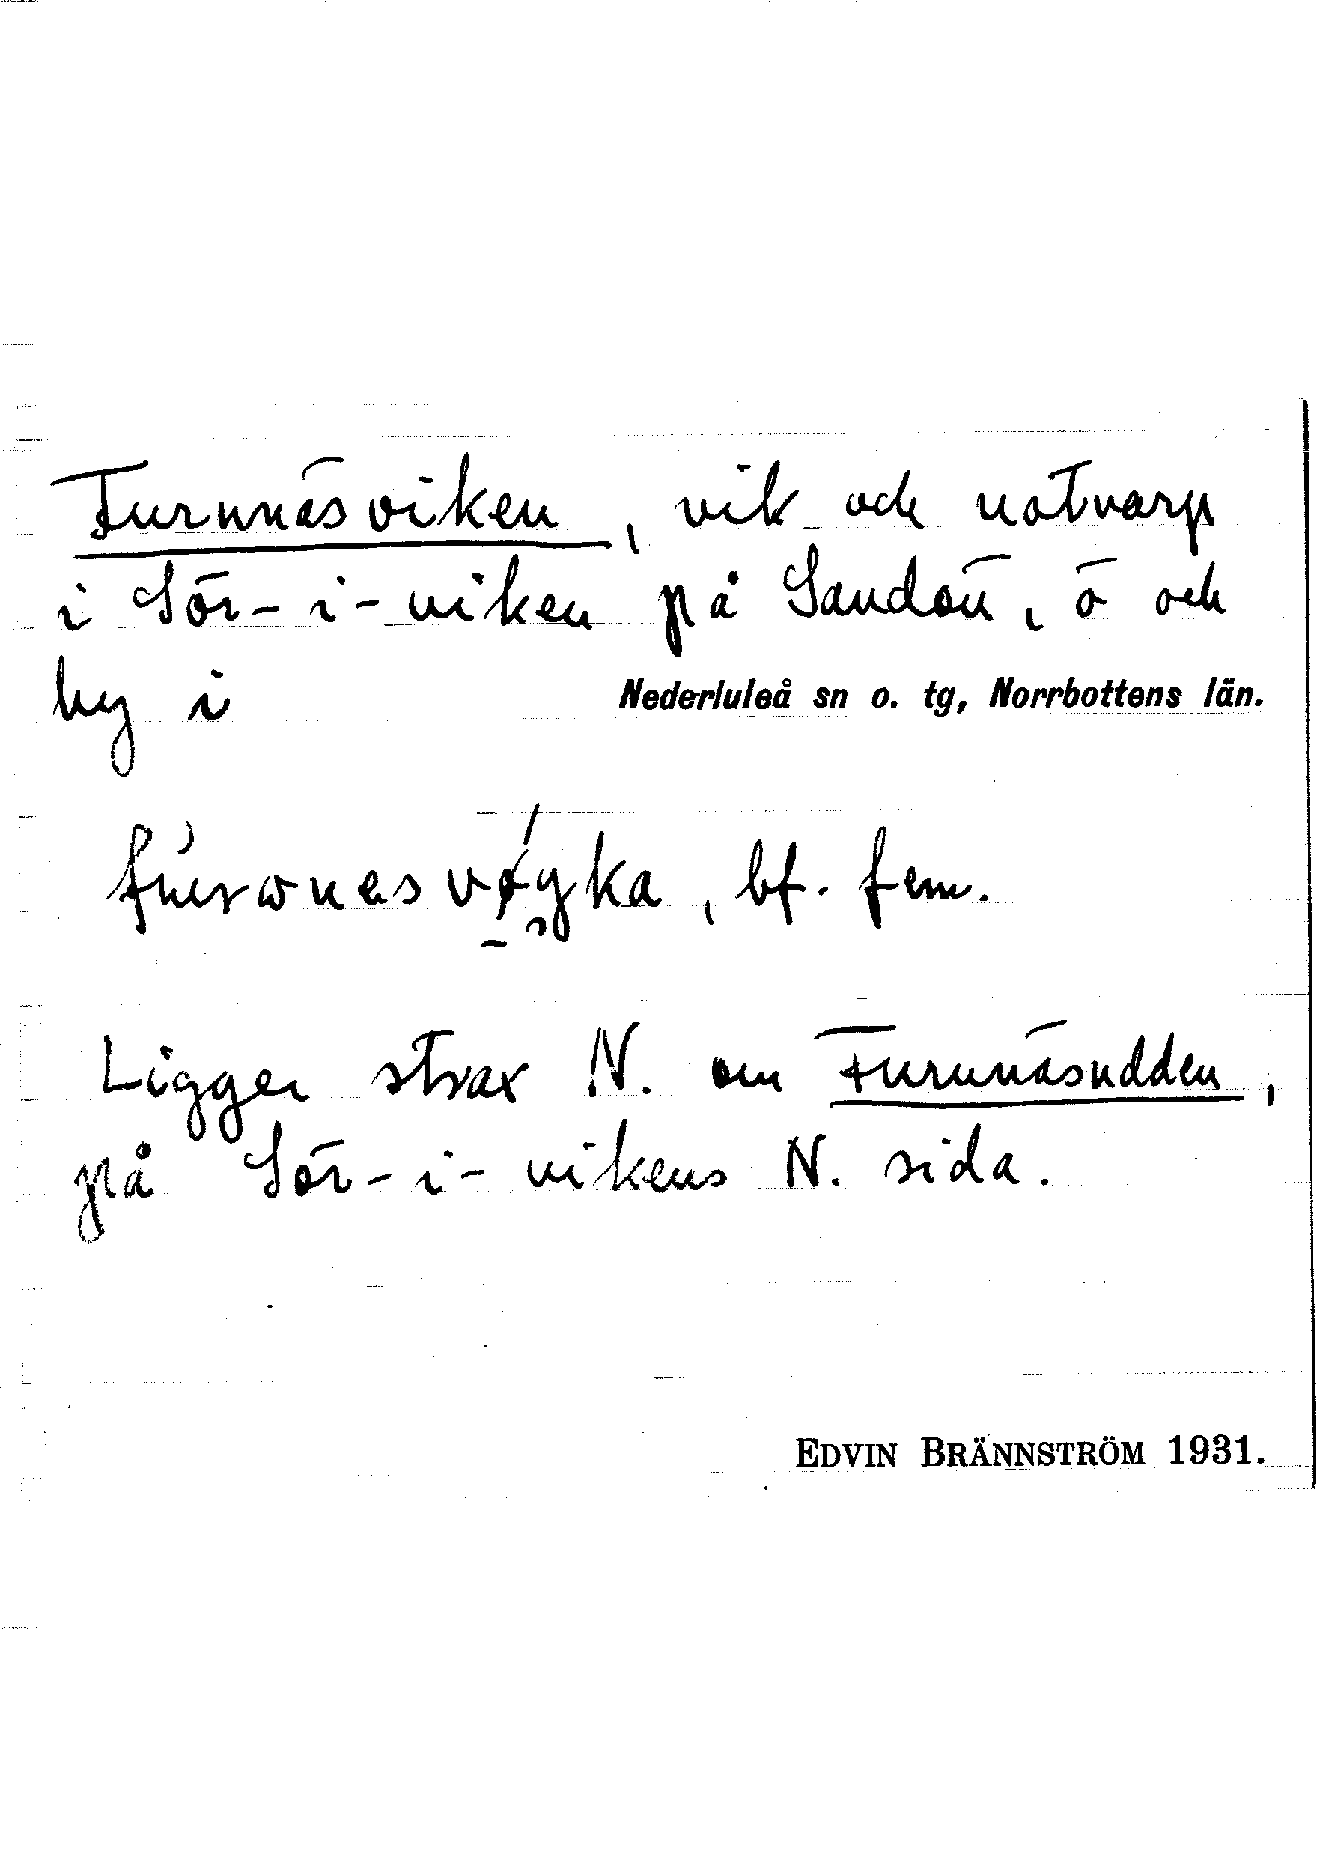 Furunäsviken, vik och notvarp
i Sör-i-viken på Sandön, ö och
by i Nederluleå sn o. tg, Norrbottens län.
bf. fem.
Ligger strax N. om Furunäsudden,
på Sör-i-vikens N. sida.
EDVIN BRÄNNSTRÖM 1931.